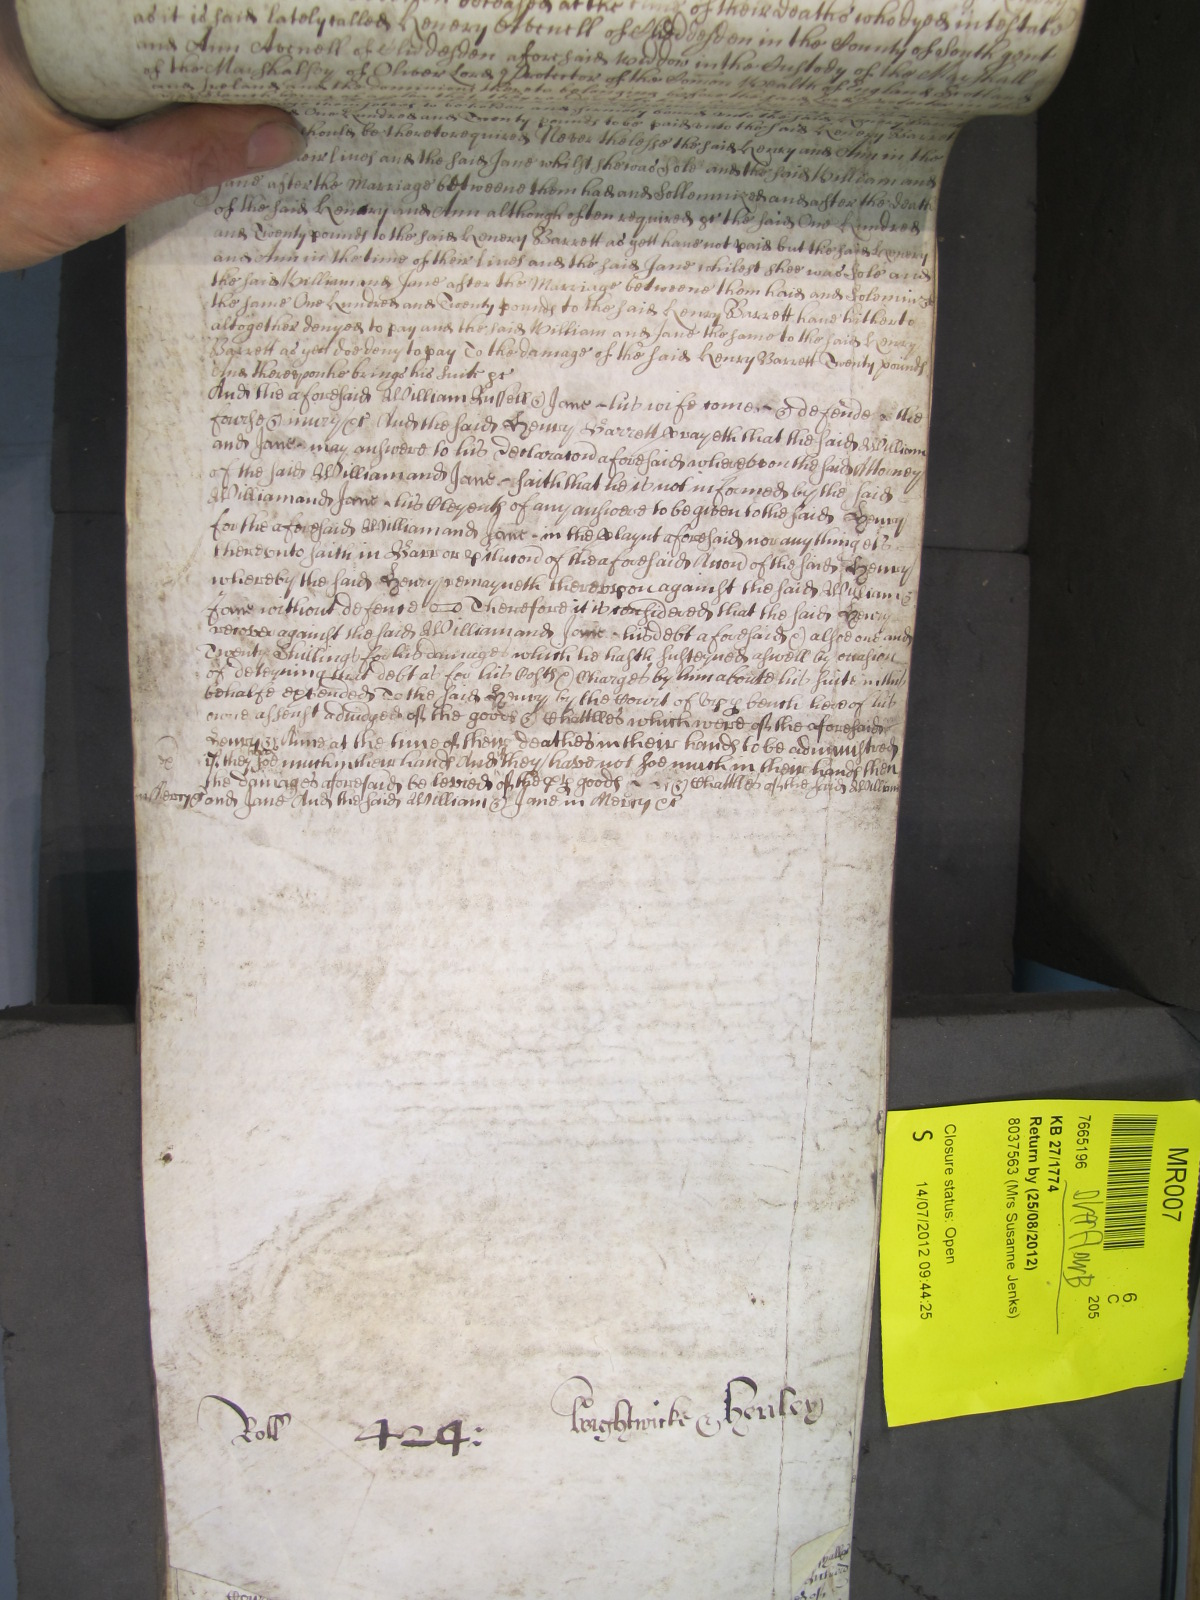 deceased at the time of their deaths who dyed intestate
as it is said lately called Henery Avenell of Fliddesden in the County of South gent
and Ann Avenell of Fliddesden aforesaid widdow in the Custody of the Marshall
of the Marshalsey of Oliver Lord Protector of the Comon Wealth of England Scotland
and Ireland and the dominions thereto belonging
One Hundred and Twenty pounds to be paid unto the said Henery Barrett
should be thereto required Neverthelesse the said Henry and Ann in the
their lives and the said Jane whilst she was sole and the said William and
Jane after the Marriage betweene them had and Sollemnized and after the death
of the said Henery and Ann although often required &c the said One Hundred
and Twenty pounds to the said Henery Barrett as yett have not paid but the said Henery
and Ann in the time of their lives and the said Jane whilest shee was Sole and
the said William and Jane after the Marriage betweene them had and Solemnized
the same One Hundred and Twenty pounds to the said Henry Barrett have hitherto
altogether denyed to pay and the said William and Jane the same to the said Henry
Barrett as yett doe deny to pay To the damage of the said Henry Barrett Twenty pounds
And thereupon he brings his suite &c
And the aforesaid William Russell & Jane his wife come & defende the
force & iniury &c And the said Henry Barrett prayeth that the said William
and Jane may answere to his Declaracon aforesaid whereupon the said Attorney
of the said William and Jane saith that he is not informed by the said
William and Jane his Clyents of any answere to be given to the said Henry
for the aforesaid William and Jane in the playnt aforesaid nor any thing els
thereunto saith in Barr or of the aforesaid Accon of the said Henry
whereby the said Henry remayneth thereupon against the said William &
Jane without defence Therefore it is considered that the said Henry
recover against the said William and Jane his debt aforesaid & alsoe one and
Twenty Shillings for his damages which he hath susteyned aswell by occasion
of deteyning that debt as for his Costs & Charges by him about his suite in this
behalfe expended To the said Henry by the Court of bench here of his
owne assent adiudged of the goods & Chattles which were of the aforesaid
Henry & Anne at the time of their deathes in their hands to be administred
if they have soe much in their hands And they have not soe much in their hands then
the Damages aforesaid be levied of the goods & Chattles of the said William
in Mercy and Jane And the said William & Jane in Mercy &c
Roll 424: Brightwicke & Henley
MR007
6
C
205
7665196
KB 27/1774
Return by (25/08/2012)
8037563 (Mrs Susanne Jenks)
Closure status: Open
S 14/07/2012 09:44:25